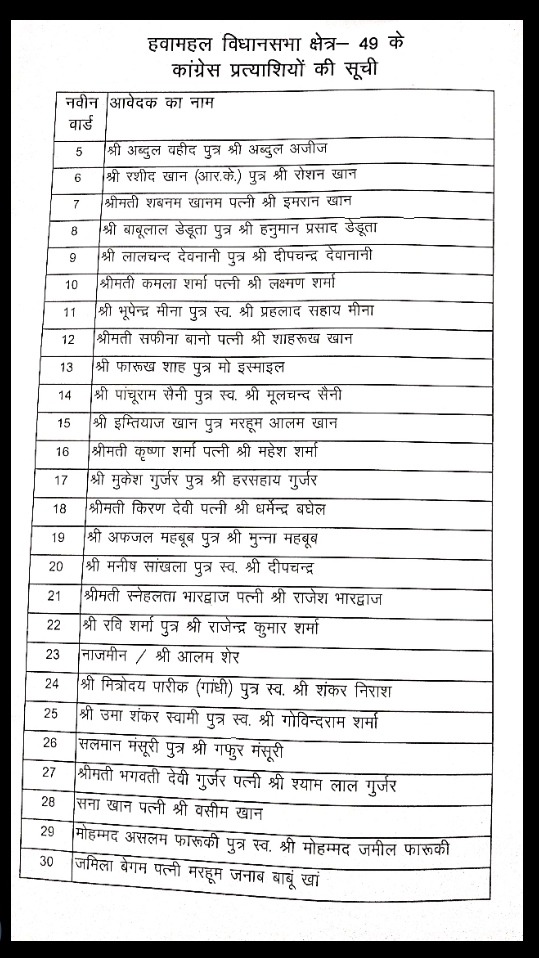 हवामहल विधानसभा क्षेत्र– 49 के
कांग्रेस प्रत्याशियों की सूची
नवीन वार्ड आवेदक का नाम
5 श्री अब्दुल वहीद पुत्र श्री अब्दुल अजीज
6 श्री रशीद खान (आर.के.) पुत्र श्री रोशन खान
7 श्रीमती शबनम खानम पत्नी श्री इमरान खान
8 श्री बाबूलाल डेडूता पुत्र श्री हनुमान प्रसाद डेडूता
9 श्री लालचन्द देवनानी पुत्र श्री दीपचन्द्र देवानानी
10 श्रीमती कमला शर्मा पत्नी श्री लक्ष्मण शर्मा
11 श्री भूपेन्द्र मीना पुत्र स्व. श्री प्रहलाद सहाय मीना
12 श्रीमती सफीना बानो पत्नी श्री शाहरूख खान
13 श्री फारूख शाह पुत्र मो इस्माइल
14 श्री पांचूराम सैनी पुत्र स्व. श्री मूलचन्द सैनी
15 श्री इम्तियाज खान पुत्र मरहूम आलम खान
16 श्रीमती कृष्णा शर्मा पत्नी श्री महेश शर्मा
17 श्री मुकेश गुर्जर पुत्र श्री हरसहाय गुर्जर
18 श्रीमती किरण देवी पत्नी श्री धर्मेन्द्र बघेल
19 श्री अफजल महबूब पुत्र श्री मुन्ना महबूब
20 श्री मनीष सांखला पुत्र स्व. श्री दीपचन्द्र
21 श्रीमती स्नेहलता भारद्वाज पत्नी श्री राजेश भारद्वाज
22 श्री रवि शर्मा पुत्र श्री राजेन्द्र कुमार शर्मा
23 नाजमीन / श्री आलम शेर
24 श्री मित्रोदय पारीक (गांधी) पुत्र स्व. श्री शंकर निराश
25 श्री उमा शंकर स्वामी पुत्र स्व. श्री गोविन्दराम शर्मा
26 सलमान मंसूरी पुत्र श्री गफुर मंसूरी
27 श्रीमती भगवती देवी गुर्जर पत्नी श्री श्याम लाल गुर्जर
28 सना खान पत्नी श्री वसीम खान
29 मोहम्मद असलम फारूकी पुत्र स्व. श्री मोहम्मद जमील फारूकी
30 जमिला बेगम पत्नी मरहूम जनाब बाबूं खां